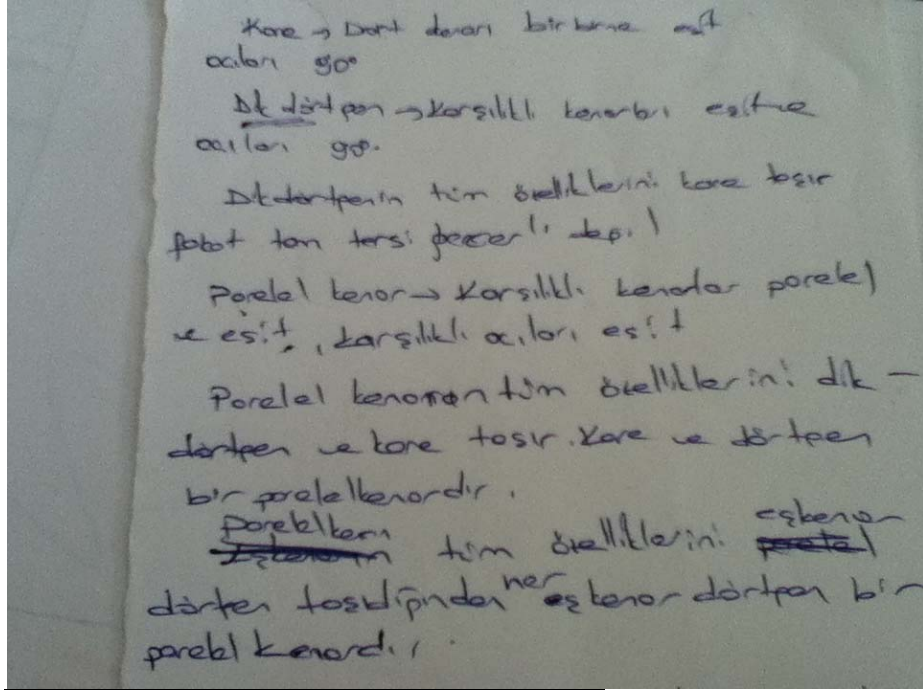 Kare → Dört kenarı birbirine eşit
açıları 90°
Dikdörtgen → Karşılıklı kenarları eşit ve
açıları 90°.
Dikdörtgenin tüm özelliklerini kare taşır
fakat tam tersi geçerli değil
Paralel kenar → Karşılıklı kenarlar paralel
ve eşit, karşılıklı açıları eşit
Paralel kenarın tüm özelliklerini dik –
dörtgen ve kare taşır. Kare ve dörtgen
bir paralelkenardır.
Paralelkenarın tüm özelliklerini eşkenar
dörtgen taşıdığından her eşkenar dörtgen bir
paralel kenardır.